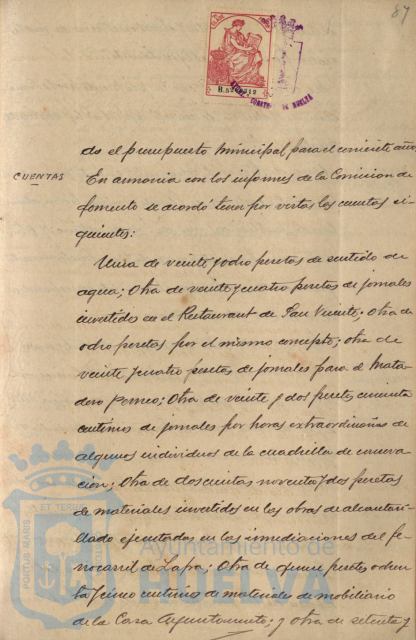 87
B.5200312
do el presupuesto municipal para el corriente año.
CUENTAS
En armonia con los informes de la Comision de
fomento se acordó tener por vistas las cuentas si-
guientes:
Una de veinte y ocho pesetas de surtido de
agua; Otra de veinte y cuatro pesetas de jornales
invertidos en el Restaurant de San Vicente; Otra de
ocho pesetas por el mismo concepto; otra de
veinte y cuatro pesetas de jornales para el Mata-
dero Porcino; Otra de veinte y dos pesetas cincuenta
centimos de jornales por horas extraordinarias de
algunos individuos de la cuadrilla de conserva-
ción; Otra de doscientas noventa y dos pesetas
de materiales invertidos en las obras de alcantari-
llado ejecutadas en las inmediaciones del fe-
rrocarril de Zafra; Otra de quince pesetas ochen-
ta y cinco centimos de materiales de mobiliario
de la Casa Ayuntamiento; y Otra de setenta y
PORTUS MARIS ET TERRAE
Ayuntamiento de
HUELVA